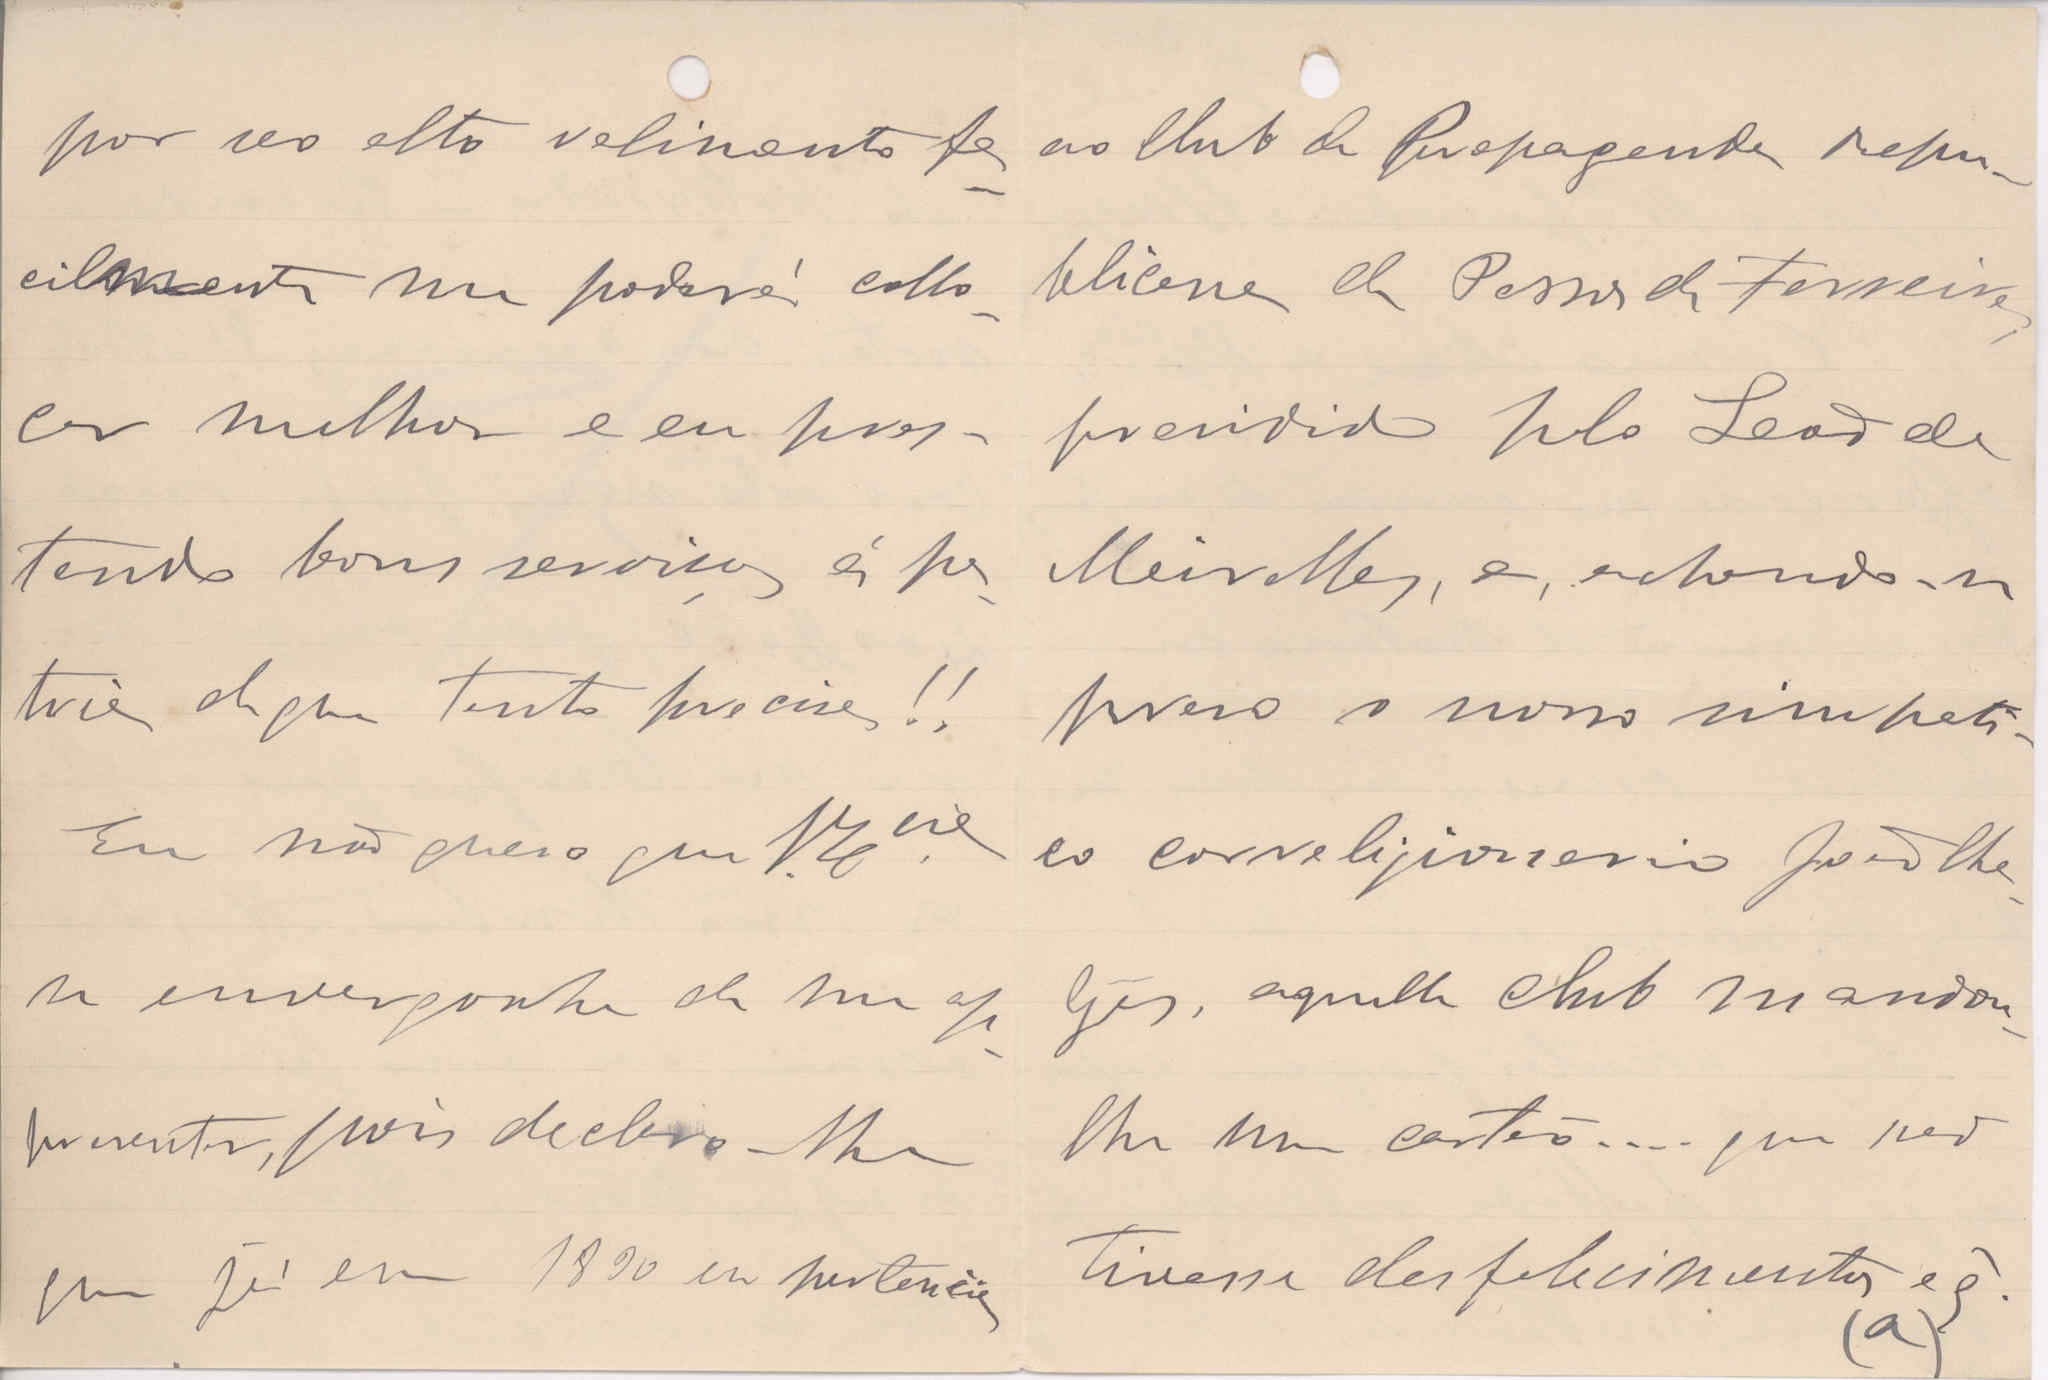 por seo alto valimento fa-
cilmente me poderá collo-
car melhor e eu pres-
tando bons serviços á pa-
tria de que tanto precisa!!
Eu não quero que V. Ex.cia
se envergonhe de me a-
presentar, pois declaro-lhe
que já em 1890 eu pertencia
ao Club de Propaganda repu-
blicana de Passos de Ferreira,
presidido pelo Leão de
Meirelles, e, achando-se
preso o nosso simpati-
co correligionario João Cha-
gas, aquelle club mandou-
lhe um cartão.... que não
tivesse desfalecimentos e q.
(a)